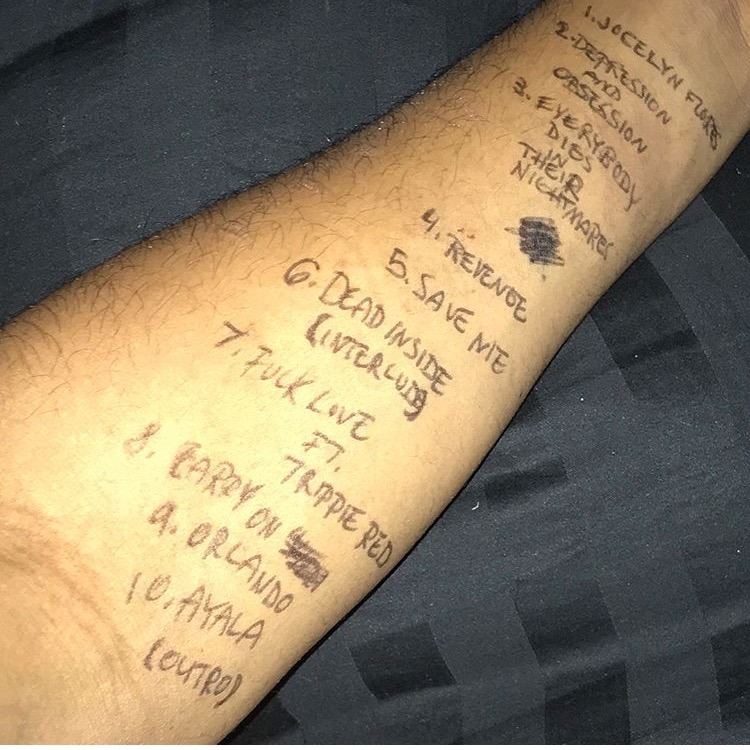 1. JOCELYN FLORES
2. DEPRESSION
AND
OBSESSION
3. EVERYBODY
DIES
IN
THEIR
NIGHTMARES
4. REVENGE
5. SAVE ME
6. DEAD INSIDE
(INTERLUDE)
7. FUCK LOVE
FT.
TRIPPIE RED
8. CARRY ON
9. ORLANDO
10. AYALA
(OUTRO)